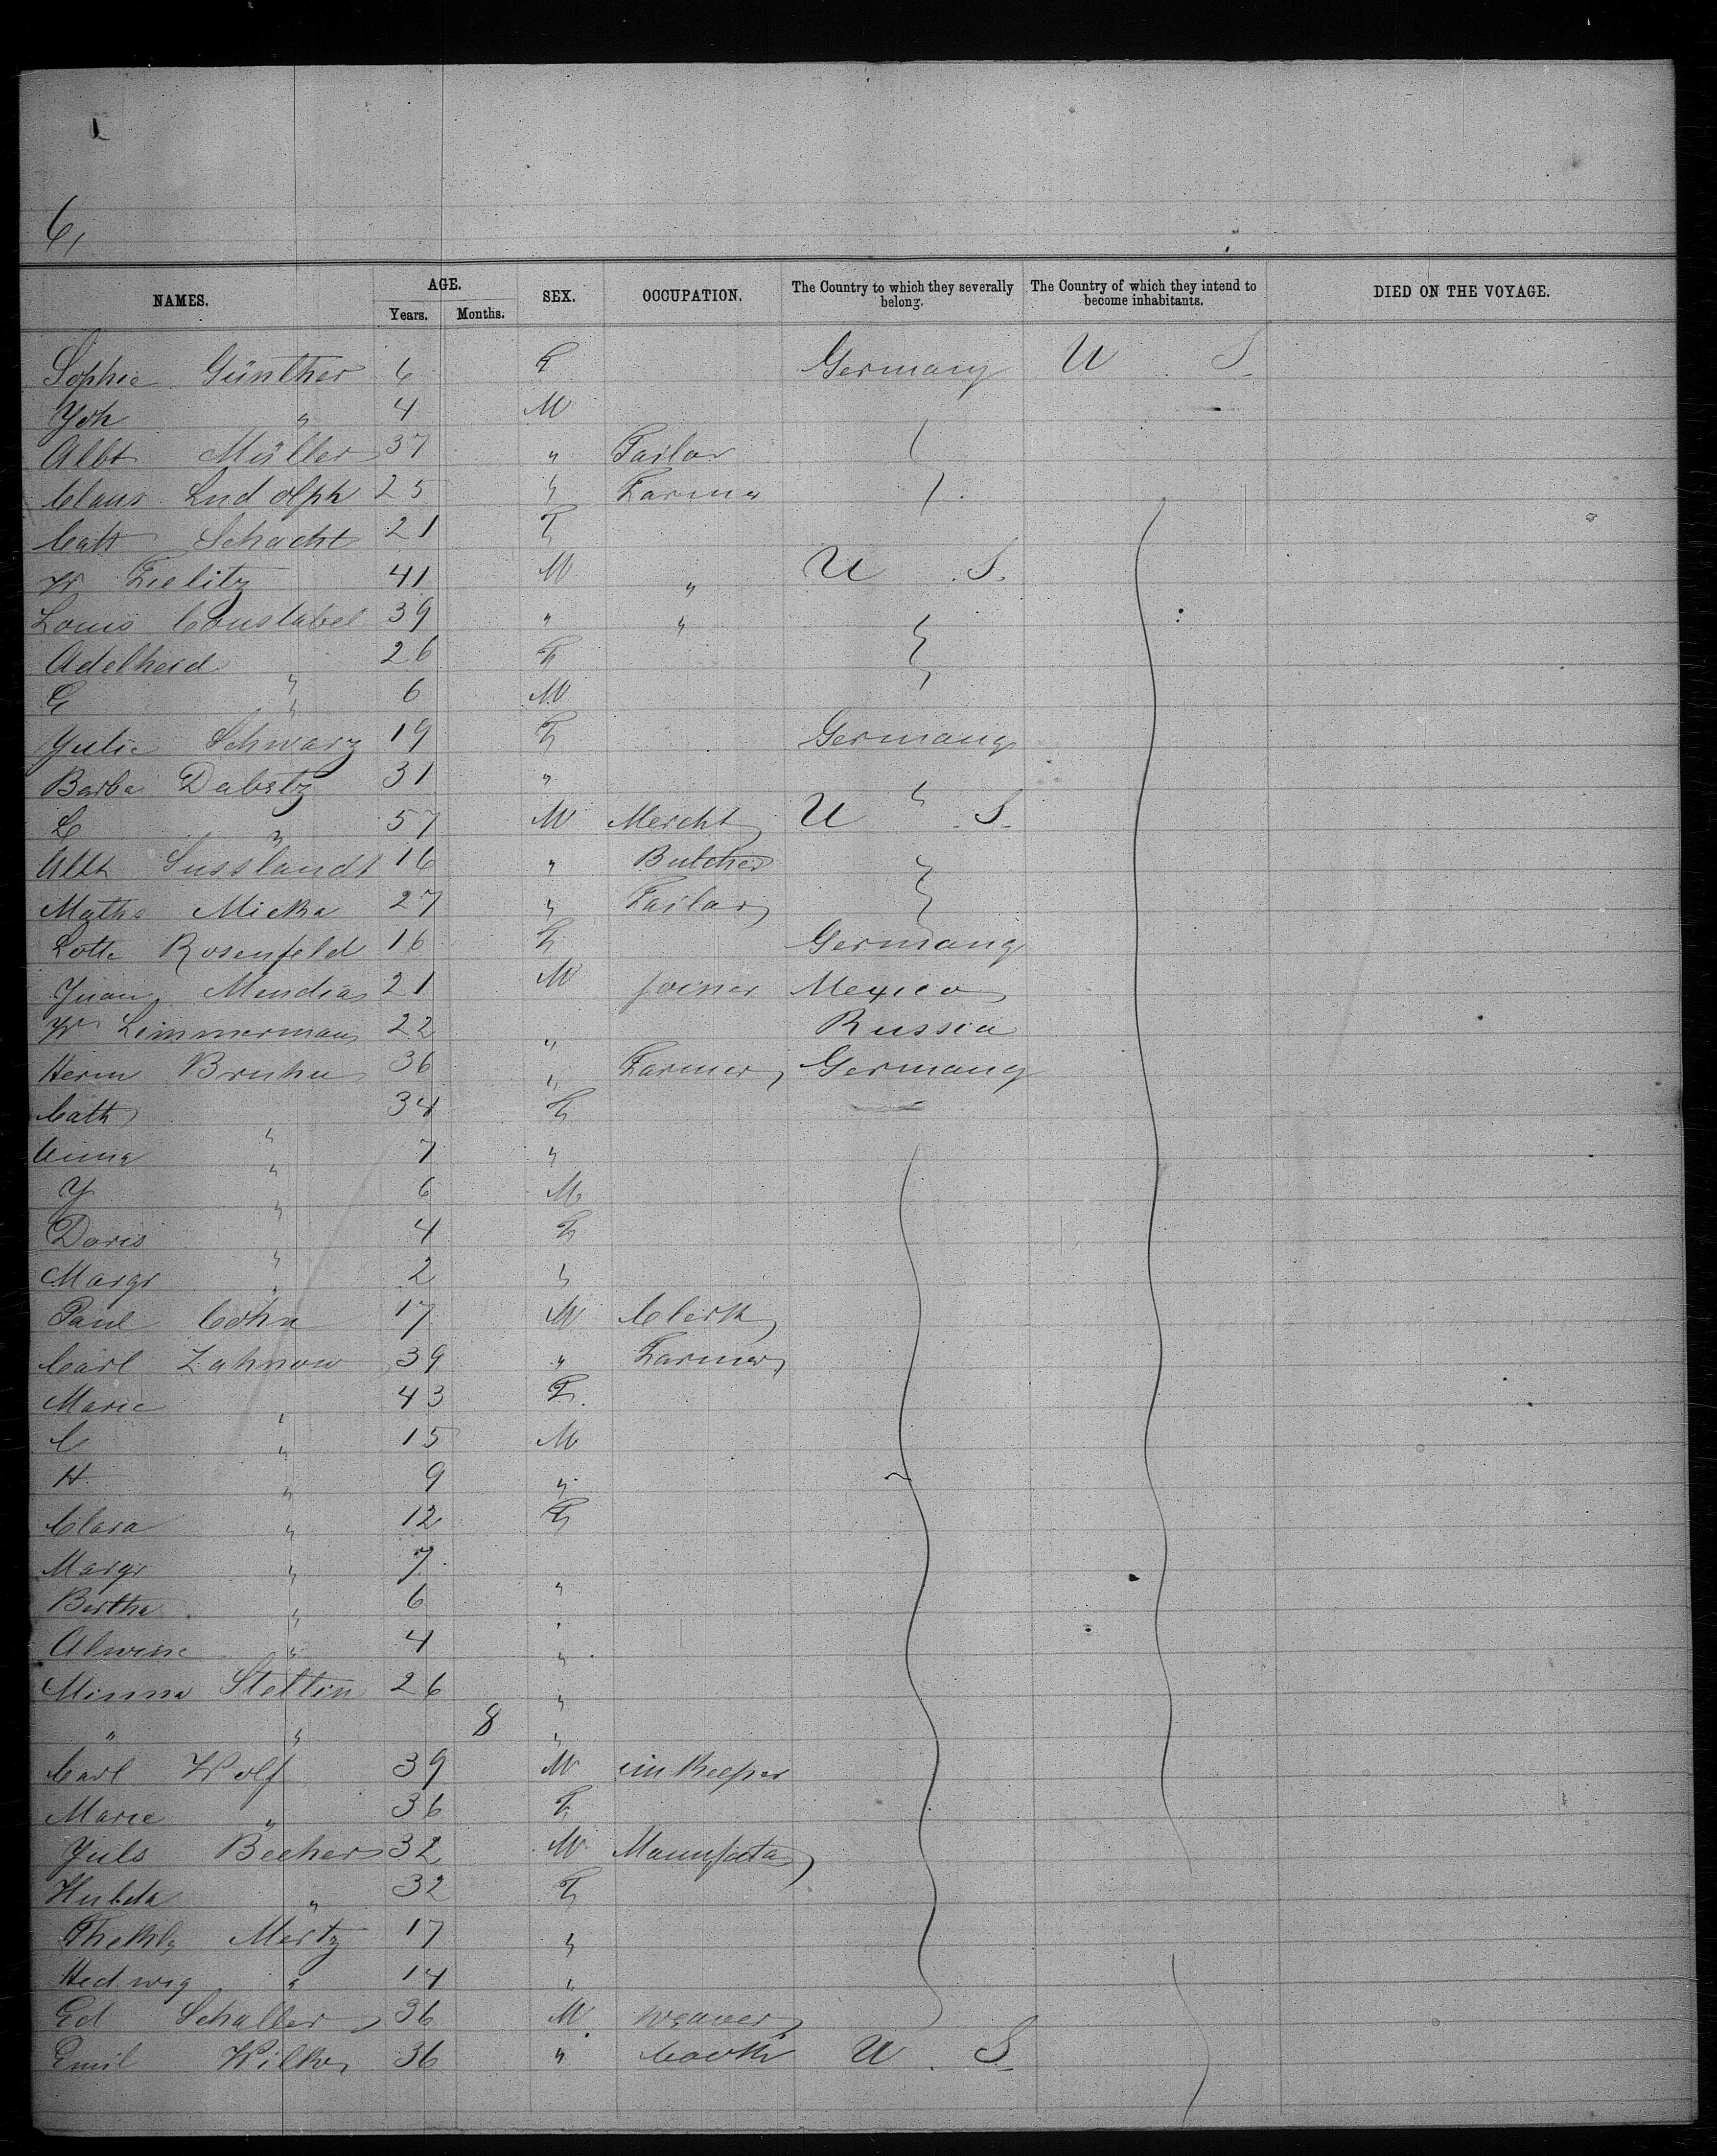 6,
NAMES. AGE. Years. Months. SEX. OCCUPATION. The Country to which they severally belong. The Country of which they intend to become inhabitants. DIED ON THE VOYAGE.
Sophie Günther 6 F Germany U S
Joh " 4 M
Albt Müller 37 " Tailor
Claus Ludolph 25 " Farmer
Cath Schacht 21 F
W Tielitz 41 M " U S.
Louis Constabel 39 " "
Adelheid " 26 F
G " 6 M
Julie Schwarz 19 F Germany
Barba Dabeltz 31 "
L " 57 M Mercht U S.
Albt Susslandt 16 " Butcher
Maths Micka 27 " Tailor
Lotte Rosenfeld 16 F Germany
Juan Mendia 21 M joiner Mexico
W Zimmermann 22 " Russia
Herm Bruhn 36 " Farmer Germany
Cath " 34 F
Anna " 7 "
J " 6 M
Doris " 4 F
Margr " 2 "
Paul Cohn 17 M Clerk
Carl Zahnow 39 " Farmer
Marie " 43 F
C " 15 M
H " 9 "
Clara " 12 F
Margr " 7
Bertha " 6 "
Alwine " 4 "
Minna Stettin 26 "
" " 8 "
Carl Wolf 39 M innkeeper
Marie " 36 F
Juls Becker 32 M
Hulda " 32 F
Thekla Mertz 17 "
Hedwig " 14 "
Ed Schaller 36 M weaver
Emil Wilke 36 " Cook U. S.